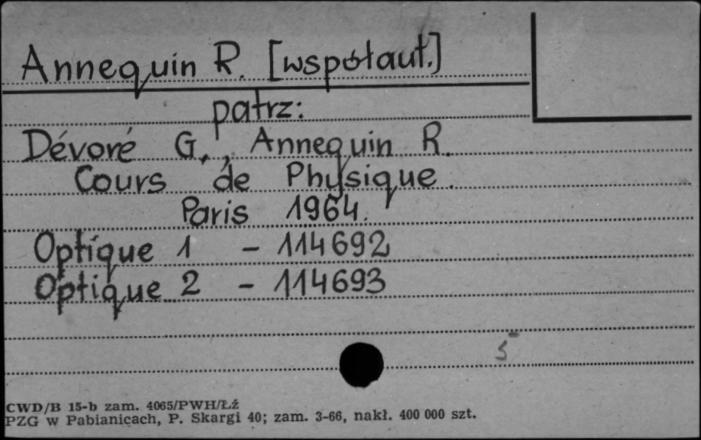 Annequin R. [współaut.]
patrz:
Dévoré G., Annequin R.
Cours de Physique.
Paris 1964.
Optique 1 - 114692
Optique 2 - 114693
5
CWD/B 15-b zam. 4065/PWH/Łż
PZG w Pabianicach, P. Skargi 40; zam. 3-66, nakł. 400 000 szt.